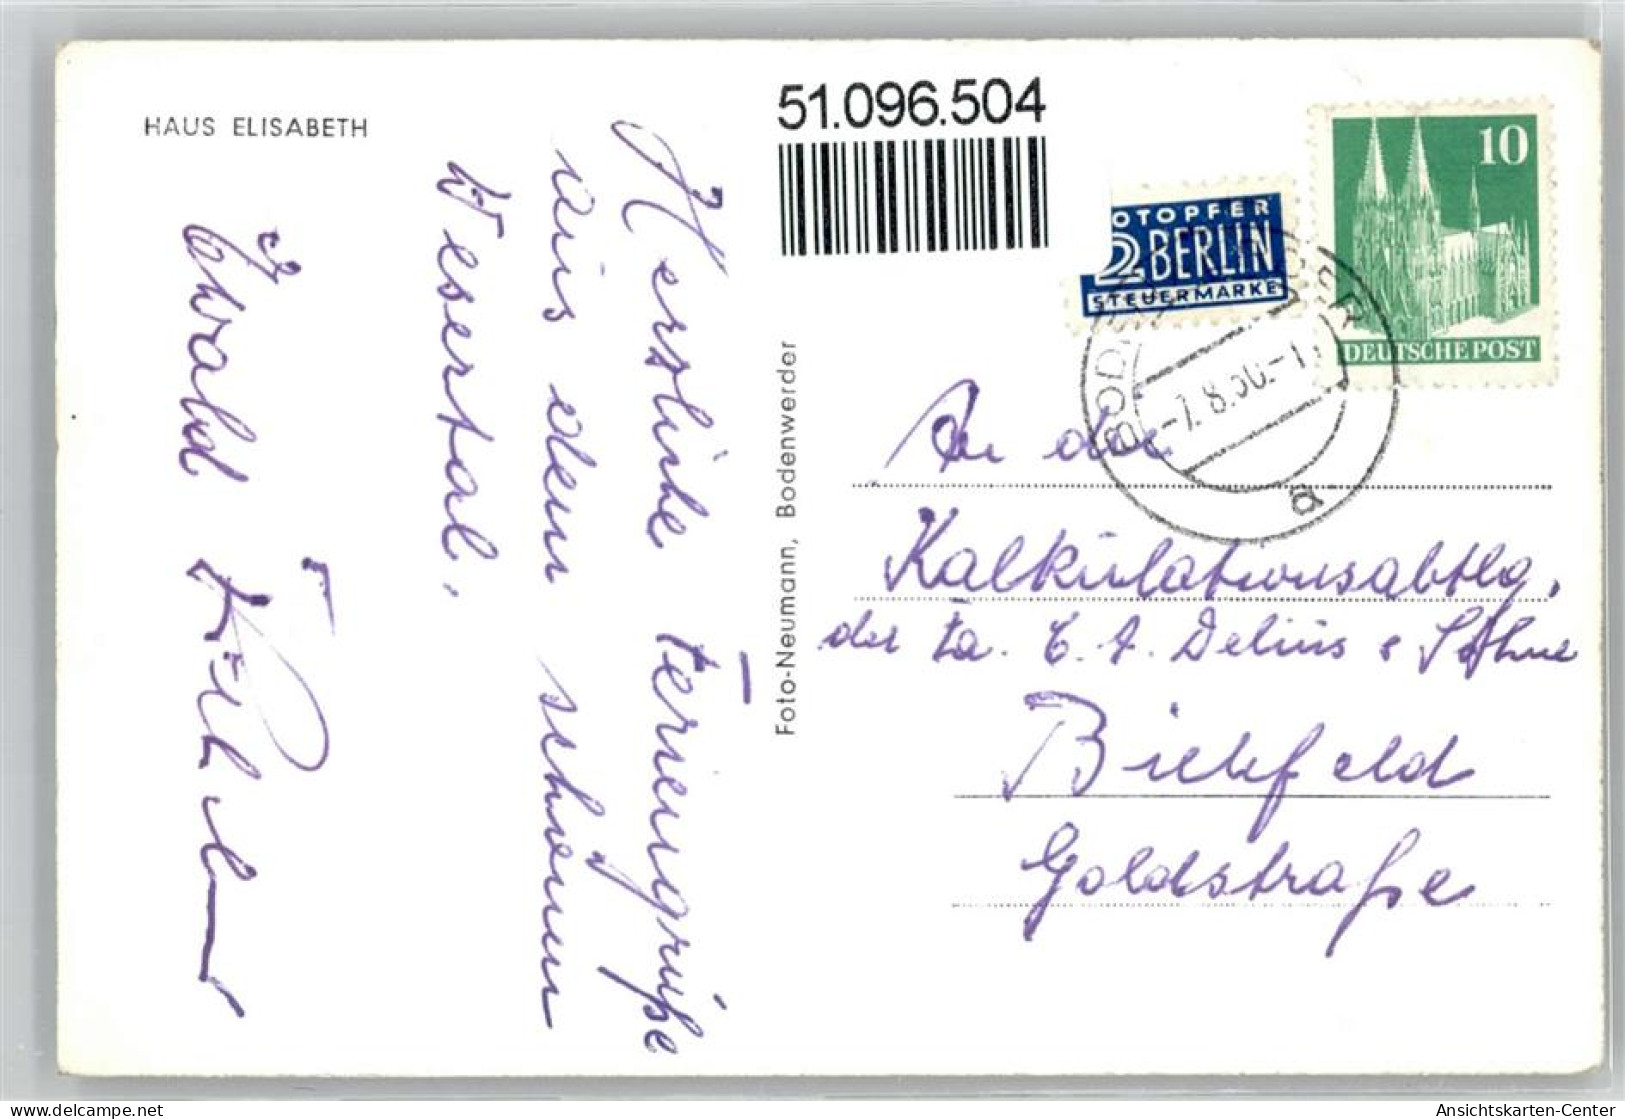 HAUS ELISABETH
51.096.504
Herzliche Feriengrüße
aus dem schönen
Wesertal.
Ewald
Foto-Neumann, Bodenwerder
10
DEUTSCHE POST
NOTOPFER
2 BERLIN
STEUERMARKE
BODENWERDER
-7.8.50.-1
a
An die
Kalkulationsabtlg.
der Fa. C. A. Delius & Söhne
Bielefeld
Goldstraße
Ansichtskarten-Center